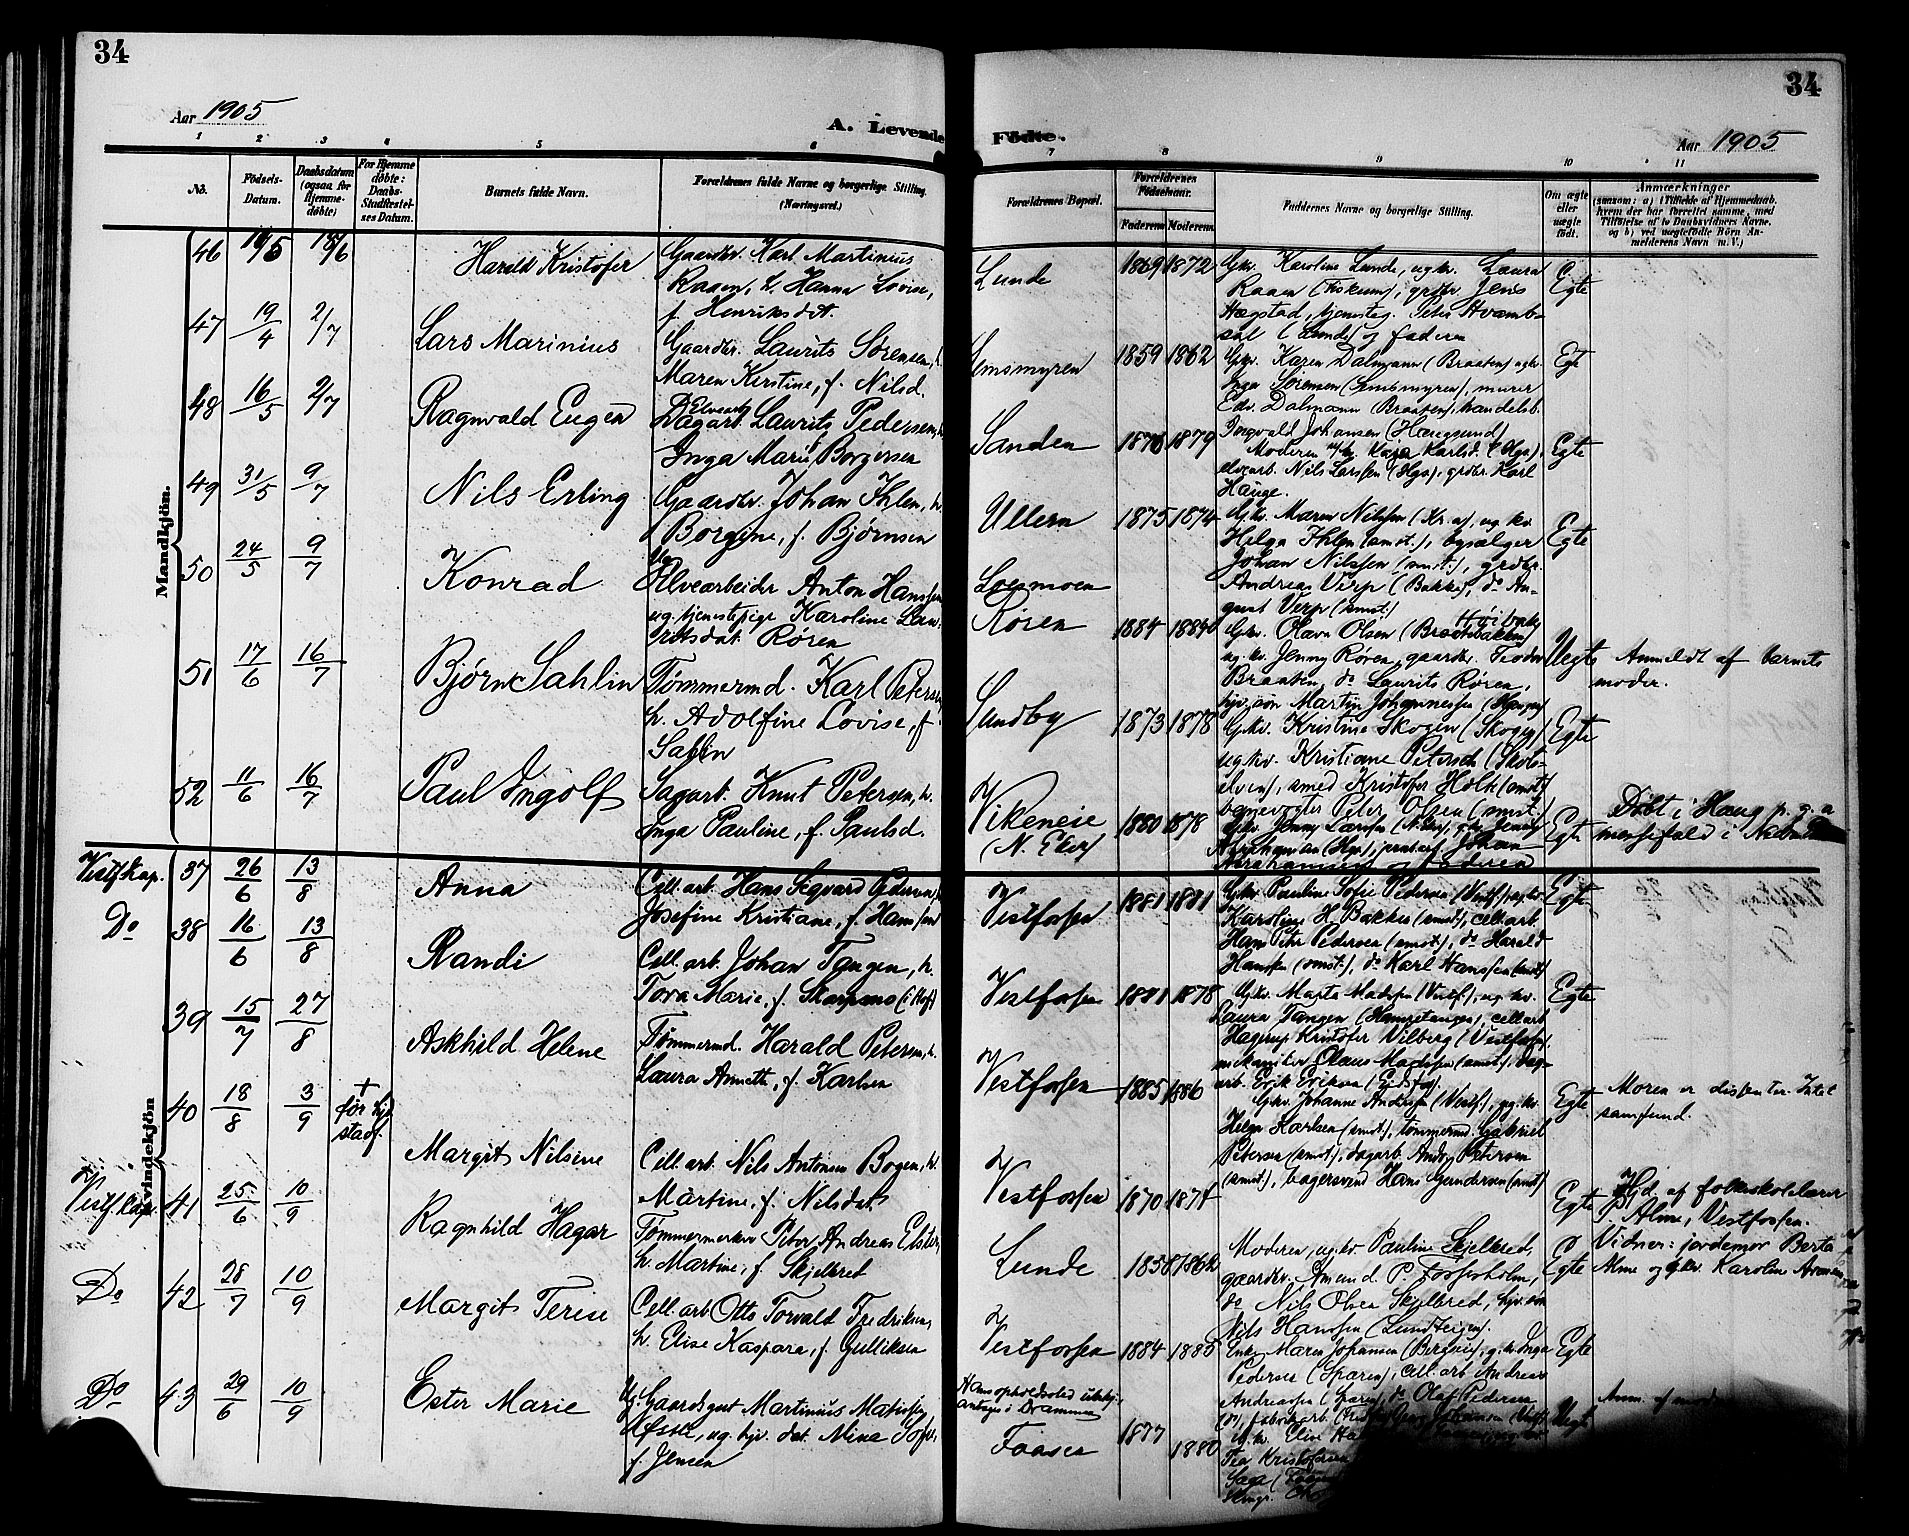 34
34
Aar 1905
A. Levende Födte.
Aar 1905
1 2 3 4 5 6 7 8 9 10 11
No.
Födsels-
Datum.
Daabsdatum
(ogsaa for
Hjemme-
døbte)
For Hjemme
døbte:
Daabs-
Stadfæstel-
ses Datum.
Barnets fulde Navn.
Forældrenes fulde Navne og borgerlige Stilling.
(Næringsvei.)
Forældrenes Bopæl.
Forældrenes
Födselsaar.
Faderens Moderens
Faddernes Navne og borgerlige Stilling.
Om ægte
eller
uægte
født.
Anmærkninger
(saasom: a) i Tilfælde af Hjemmedaab,
hvem der har forrettet samme, med
Tilføielse af to Daabsvidners Navne,
og b) ved uægtefödte Börn An-
melderens Navn m. V.)
Mandkjön.
46
Harald Kristofer
Gaardbr. Karl Martinius
Raaen, h. Hanna Lovise,
f. Henriksdat.
Lunde
1869 1872
Gkv. Karoline Lunde, ugkv. Laura
Raaen (Fiskum), grdbr Jens
Hægstad, tjenesteg. Peter Hvamb-
sal (Lunde) og faderen
Egte
47 19/4 2/7
Lars Marinius
Gaardbr. Laurits Sørensen, h.
Maren Kirstine, f. Nilsd.
Semsmyren
1859 1862
Gkv. Karen Dalmann (Braaten) ugkv.
Inga Sørensen (Semsmyren), murer
Edv. Dalmann (Braaten), handelsb.
Ingvald Johansen (Hæregsund)
Egte
48 16/5 2/7
Ragnvald Eugen
Elvearb
Dagarb. Laurits Pedersen, h.
Inga Marie Borgersen
Sanden
1876 1879
Moderen, ugkv Kaja Karlsd. (Hga),
elvearb. Nils Larsen (Hga), grdbr. Karl
Hauge.
Egte
49 31/5 9/7
Nils Erling
Gaardbr. Johan Ihlen, h.
Borgine, f. Bjørnsen
Ullern
1875 1874
Gkv. Maren Nilssen (Kr.a), ug kv
Helga Ihlen (smst.), bysælger
Johan Nilssen (smst.), grdbr.
Andreas Verp (Bakke), do Au-
gust Verp (smst.)
Egte
50 24/5 9/7
Konrad
Ug
Elvearbeider Anton Hanssen
ug. tjenestepige Karoline Lau-
ritsdat. Røren
Loesmoen
Røren
1884 1884
Gkv. Olava Olsen (Braatebakken)
ug. kv. Jenny Røren, gaardbr. Teodor
Braaten, do Laurits Røren,
hjv. søn Martin Johannessen (Haugen)
Uegte
Anmeldt af barnets
moder.
51 17/6 16/7
Bjørn Sahlin
Tømmermd. Karl Petersen,
h. Adolfine Lovise, f.
Sahlin
Sundby
1873 1878
Gkv. Kristine Skogen (Skogen)
ug.kv. Kristiane Petersen (Skots-
elven), smed Kristofer Holth (smst)
Peter Olsen (smst.)
Egte
52 11/6 16/7
Paul Ingolf
Sagarb. Knut Petersen, h.
Inga Pauline, f. Paulsd.
Vikeneie
(N. Eker)
1880 1878
Gkv. Jenny Larsen
Abrahamsen (Hga), Johan
Abrahamsen og faderen
Egte
Døbt i Haug p. g. a
messefald i
Kvindekjön
Vestf kap. 37 26/6 13/8
Anna
Cell. arb. Hans Segvard Pedersen, h.
Josefine Kristiane, f. Hanssen
Vestfossen
1881 1881
Gkv. Pauline Sofie Pedersen (Vestf), ug.kv.
Karoline H. Bakke (smst), cell.arb.
Hans Petr Pedersen (smst.), do Harald
Hanssen (smst.), do Karl Hanssen (smst)
Egte
Do 38 16/6 13/8
Randi
Cell. arb. Johan Tangen, h.
Tora Marie, f. Skarpmo (i Hof)
Vestfossen
1881 1878
Gkv. Marta Madsen (Vestf.), ug. kv.
Laura Tangen (Hansetangen), cell.arb
Hagerup Kristofer Vilberg (Vestfossen)
Claus Madsen (smst.), dag-
arb. Erik Eriksen
Egte
39 15/7 27/8
Askhild Helene
Tømmermd. Harald Petersen, h.
Laura Annette, f. Karlsen
Vestfossen
1885 1886
Gkv. Johanne Andersen (Vestf), ug.kv.
Helga Karlsen (smst.), tømmermd. Gabriel
Petersen (smst.), dagarb. Andr. Petersen
(smst.), bagersvend Hans Gundersen (smst)
Egte
Moren er dissenter.
samfund.
40 18/8 3/9
†
før hjd
stadf.
Margit Nilsine
Cell. arb. Nils Antonsen Bogen, h.
Martine, f. Nilsdat.
Vestfossen
1870 1874
Egte
Hjd. af folkeskolelærer
P. Alme, Vestfossen.
Vidner: jordemor Berta
Alme og gkv. Karoline
Vestf kap. 41 25/6 10/9
Ragnhild Hagar
Tømmermerker Peter Andreas Elster,
h. Martine, f. Skjelbred
Lunde
1858 1862
Moderen, ug.kv Pauline Skjelbred,
gaardbr. Amund P. Fossesholm,
do Nils Olsen Skjelbred, hjv. søn
Nils Hanssen (Lundteigen).
Egte
Do 42 28/7 10/9
Margit Terese
Cell. arb Otto Torvald Fredriksen,
h. Elise Kaspara, f. Gulliksen
Vestfossen
1884 1885
Enke Maren Johansen (Bergsvei), gkv Inga
Pedersen (Sparen), cell. arb Andreas
Andreassen (Sparen), do Olaf Pedersen
Egte
Do 43 29/6 10/9
Ester Marie
Ug. Gaardsgut Martinius Matiasen
Østre, ug. hjv. dat. Mina Sofie,
f. Jensen
Hans opholdssted ubekj.
antages i Drammen
Faasen
1877
1880
Ug. kv. Eline
Tea Kristofersen
Uegte
Anm. af mod